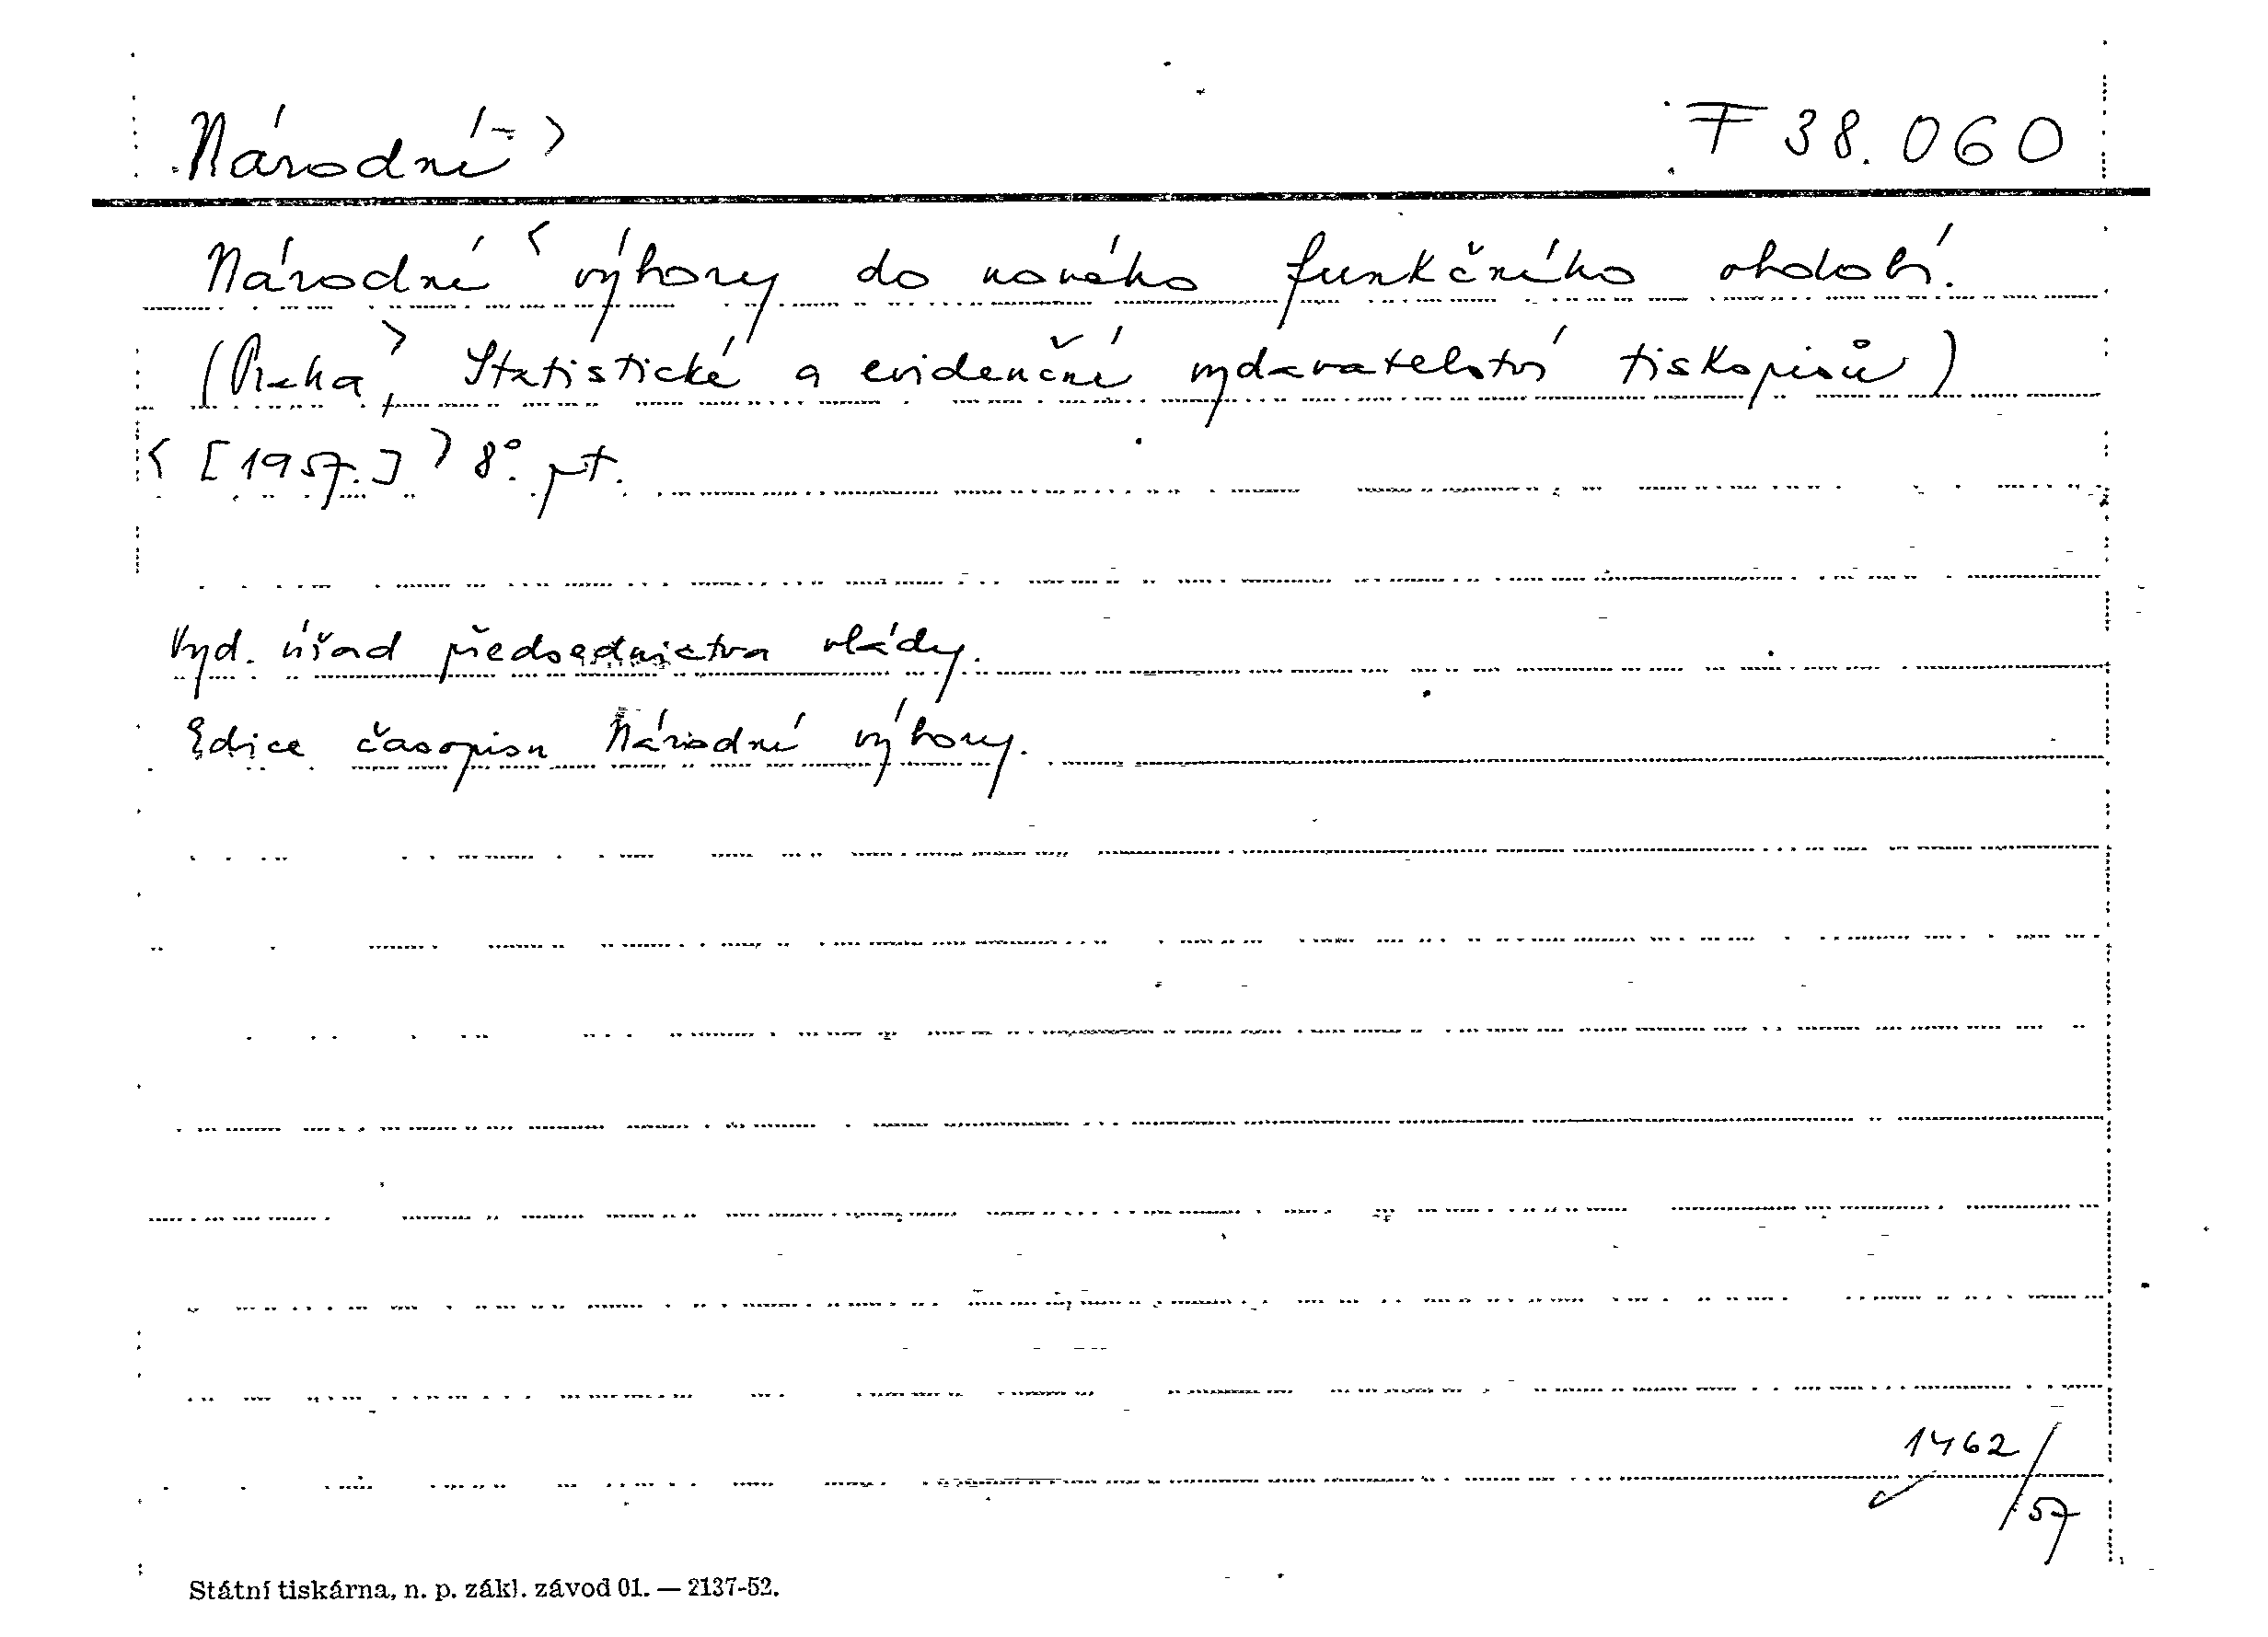 Národní - >
F 38.060
Národní < výbory do nového funkčního období.
(Praha >, Statistické a evidenční vydavatelství tiskopisů)
< [1957.] > 8°. pt.
Vyd. úřad předsednictva vlády.
Edice časopisu Národní výbory.
1462/57
Státní tiskárna, n. p. zákl. závod 01. — 2137-52.